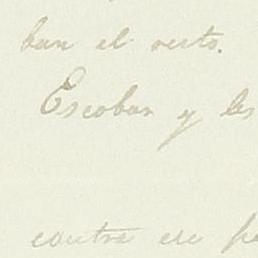 ban el resto.
Escobar y les
contra ese